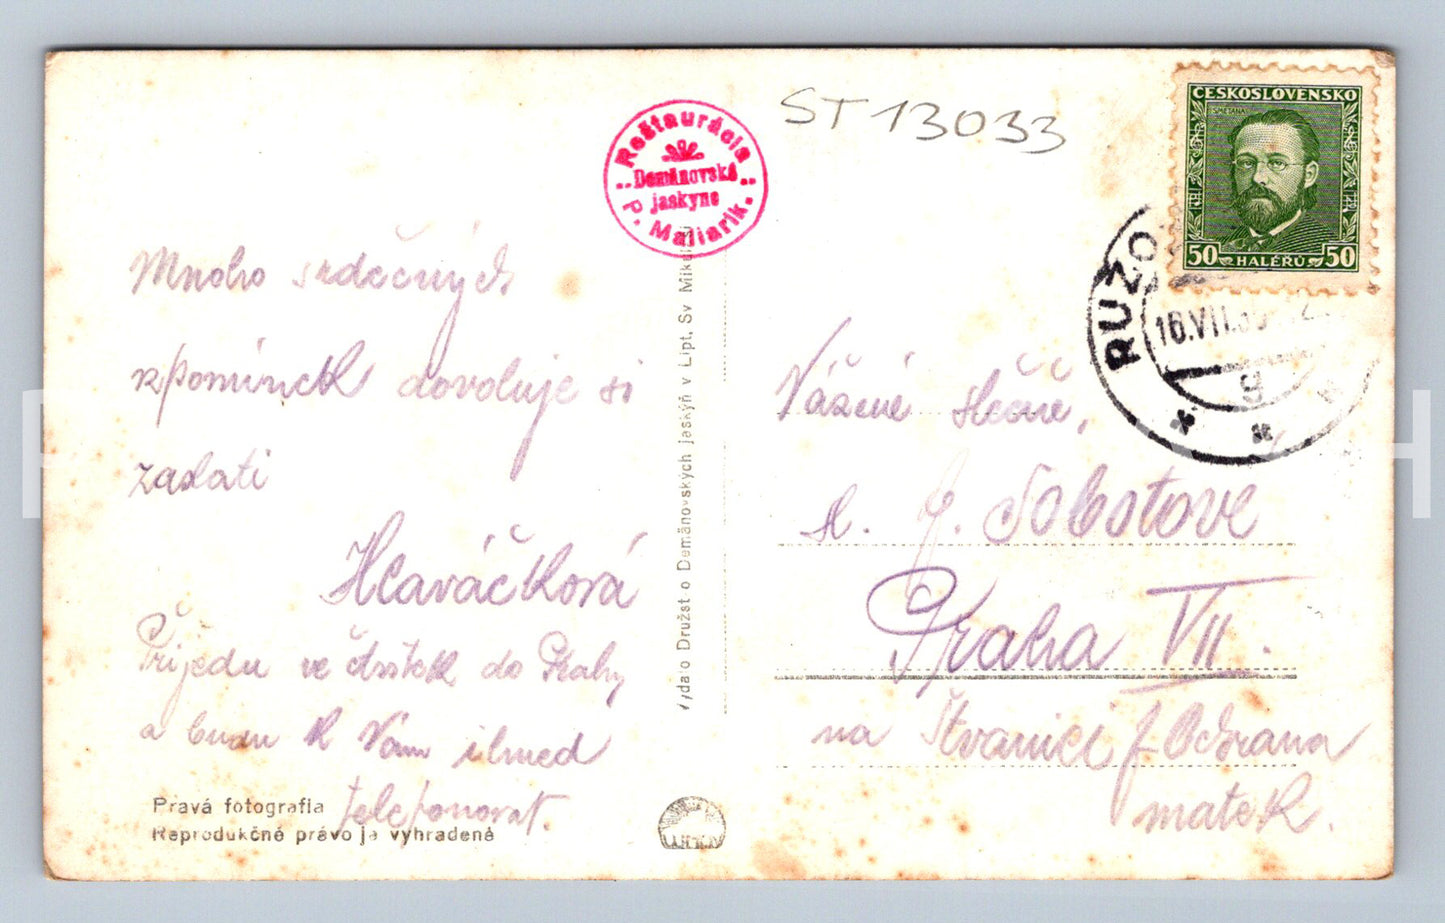 ST 13033
ČESKOSLOVENSKO
SMETANA
50 HALÉŘŮ 50
Reštaurácia
Demänovské
jaskyne
P. Maliarik.
RUŽO
16.VII.
Mnoho srdečných
vzpomínek dovoluje si
zaslati
Hlaváčková
Přijedu ve čtvrtek do Prahy
a budu k Vám ihned
telefonovat.
Pravá fotografia
Reprodukčné právo je vyhradené
Vydalo Družstvo Demänovských jaskýň v Lipt. Sv. Mikuláši
Vážené slečně,
sl. J. Sobotove
Praha VII.
na Štvanici / Ochrana
matek.